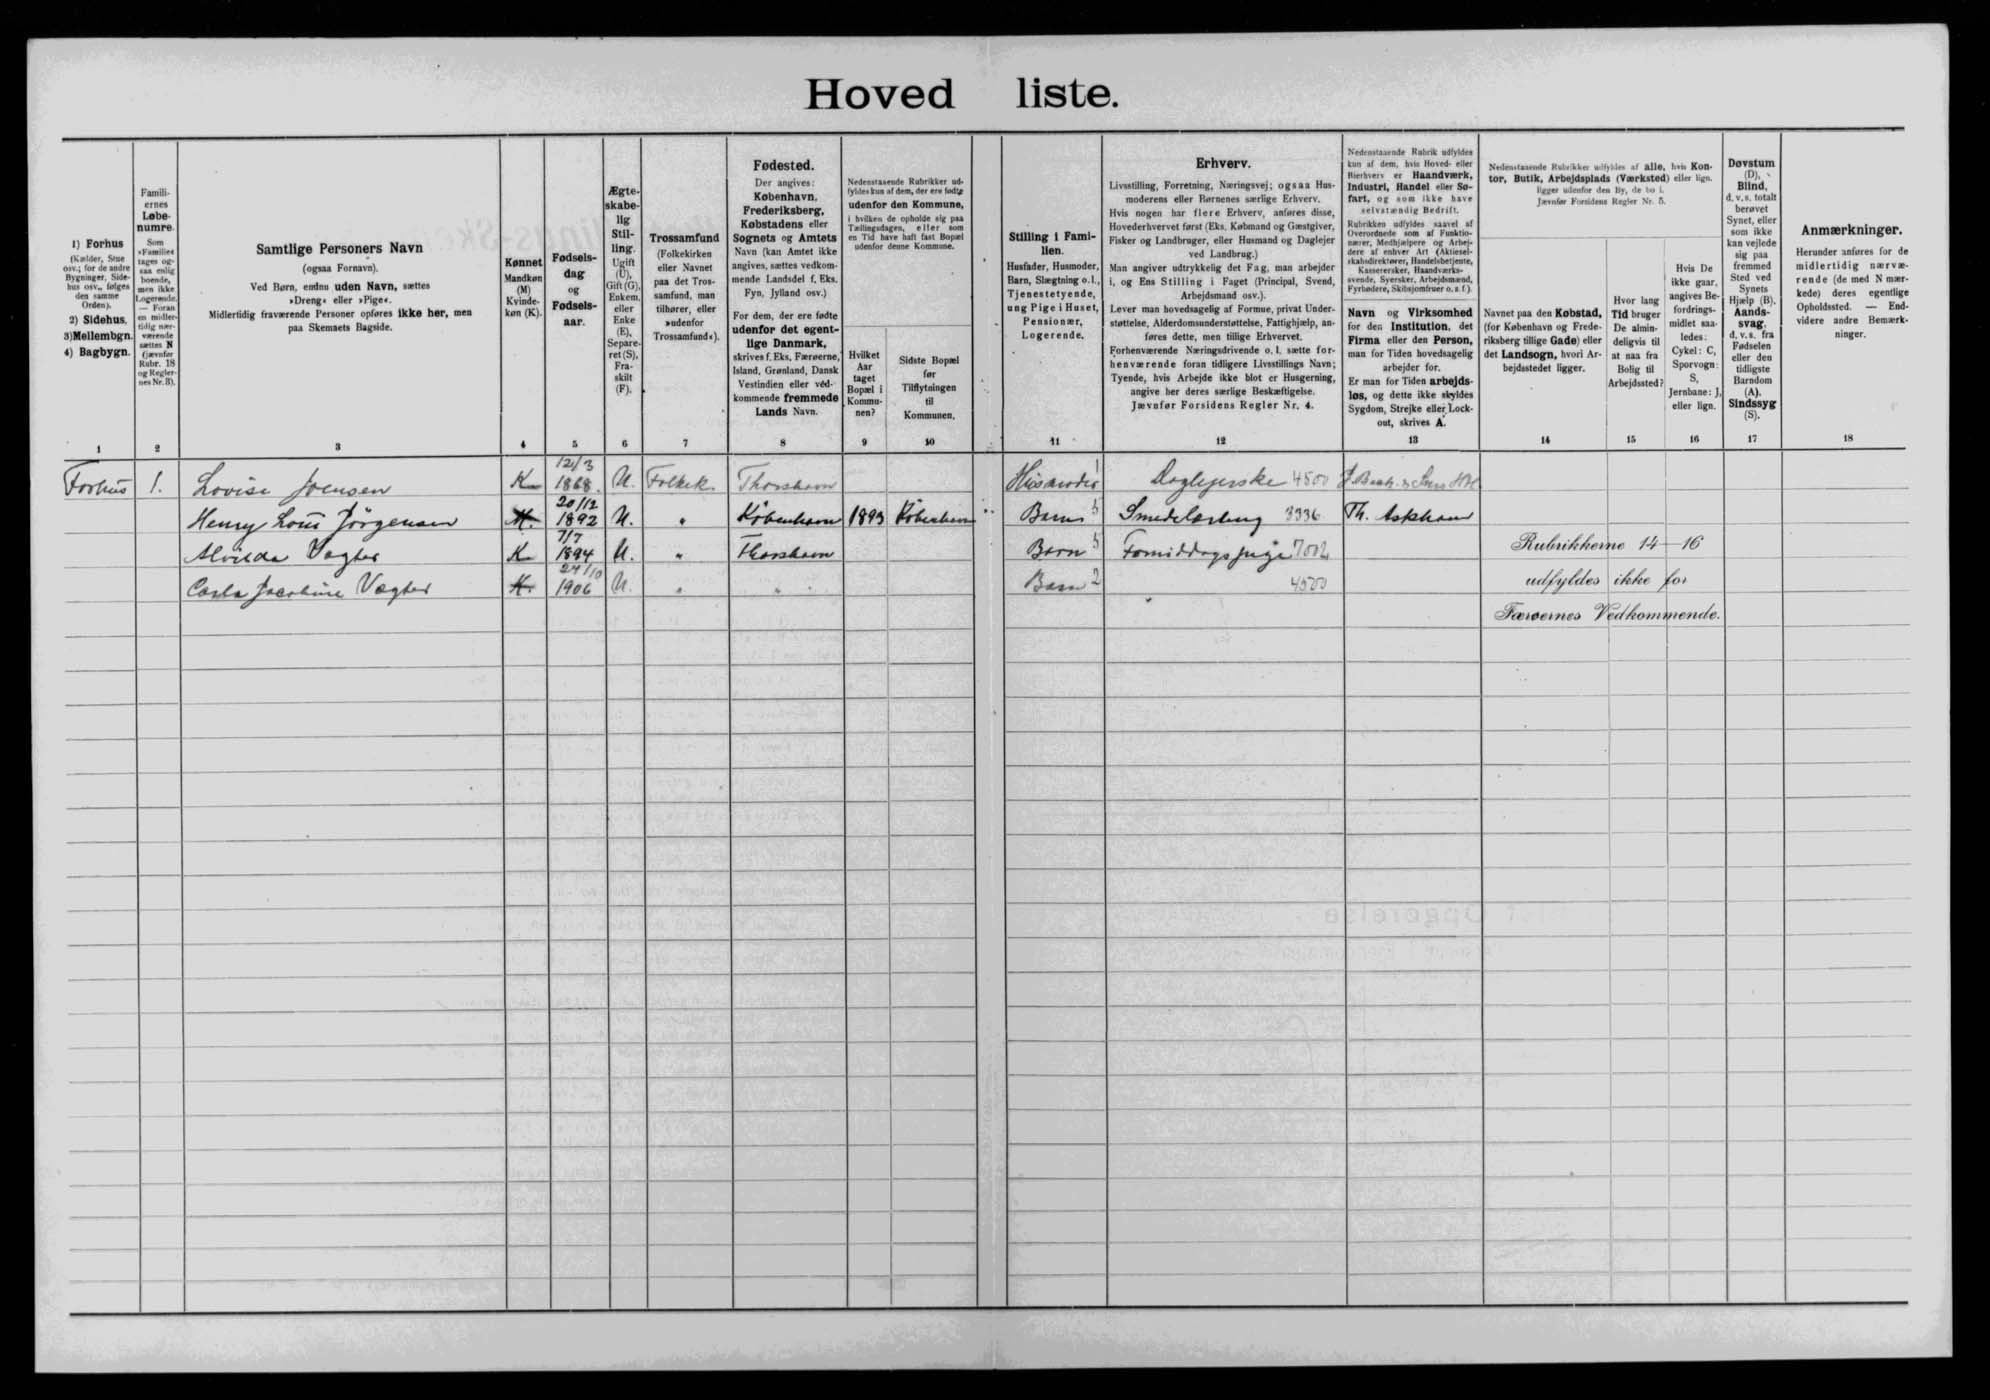 Hoved liste.
1) Forhus
(Kælder, Stue
osv.; for de andre
Bygninger, Side-
hus osv., følges
den samme
Orden).
2) Sidehus,
3) Mellembgn.
4) Bagbygn.
1
Famili-
ernes
Løbe-
numre.
Som
»Familie«
tages og-
saa enlig
boende,
men ikke
Logerende.
— Foran
en midler-
tidig nær-
værende
sættes N
(jævnfør
Rubr. 18
og Regler-
nes Nr. 3).
2
Samtlige Personers Navn
(ogsaa Fornavn).
Ved Børn, endnu uden Navn, sættes
»Dreng« eller »Pige«.
Midlertidig fraværende Personer opføres ikke her, men
paa Skemaets Bagside.
3
Kønnet
Mandkøn
(M)
Kvinde-
køn (K).
4
Fødsels-
dag
og
Fødsels-
aar.
5
Ægte-
skabe-
lig
Stil-
ling.
Ugift
(U),
Gift (G),
Enkem.
eller
Enke
(E),
Separe-
ret (S),
Fra-
skilt
(F).
6
Trossamfund
(Folkekirken
eller Navnet
paa det Tros-
samfund, man
tilhører, eller
»udenfor
Trossamfund«).
7
Fødested.
Der angives:
København,
Frederiksberg,
Købstadens eller
Sognets og Amtets
Navn (kan Amtet ikke
angives, sættes vedkom-
mende Landsdel f. Eks.
Fyn, Jylland osv.)
For dem, der ere fødte
udenfor det egent-
lige Danmark,
skrives f. Eks. Færøerne,
Island, Grønland, Dansk
Vestindien eller ved-
kommende fremmede
Lands Navn.
8
Nedenstaaende Rubrikker ud-
fyldes kun af dem, der ere fødte
udenfor den Kommune,
i hvilken de opholde sig paa
Tællingsdagen, eller som
en Tid have haft fast Bopæl
udenfor denne Kommune.
Hvilket
Aar
taget
Bopæl i
Kommu-
nen?
9
Sidste Bopæl
før
Tilflytningen
til
Kommunen.
10
Stilling i Fami-
lien.
Husfader, Husmoder,
Barn, Slægtning o. l.,
Tjenestetyende,
ung Pige i Huset,
Pensionær,
Logerende.
11
Erhverv.
Livsstilling, Forretning, Næringsvej; ogsaa Hus-
moderens eller Børnenes særlige Erhverv.
Hvis nogen har flere Erhverv, anføres disse,
Hovederhvervet først (Eks. Købmand og Gæstgiver,
Fisker og Landbruger, eller Husmand og Daglejer
ved Landbrug.)
Man angiver udtrykkelig det Fag, man arbejder
i, og Ens Stilling i Faget (Principal, Svend,
Arbejdsmand osv.).
Lever man hovedsagelig af Formue, privat Under-
støttelse, Alderdomsunderstøttelse, Fattighjælp, an-
føres dette, men tillige Erhvervet.
Forhenværende Næringsdrivende o. l. sætte for-
henværende foran tidligere Livsstillings Navn;
Tyende, hvis Arbejde ikke blot er Husgerning,
angive her deres særlige Beskæftigelse.
Jævnfør Forsidens Regler Nr. 4.
12
Nedenstaaende Rubrik udfyldes
kun af dem, hvis Hoved- eller
Bierhverv er Haandværk,
Industri, Handel eller Sø-
fart, og som ikke have
selvstændig Bedrift.
Rubrikken udfyldes saavel af
Overordnede som af Funktio-
nærer, Medhjælpere og Arbej-
dere af enhver Art (Aktiesel-
skabsdirektører, Handelsbetjente,
Kassererersker, Haandværks-
svende, Syersker, Arbejdsmænd,
Fyrbødere, Skibsjomfruer o. s. f.).
Navn og Virksomhed
for den Institution, det
Firma eller den Person,
man for Tiden hovedsagelig
arbejder for.
Er man for Tiden arbejds-
løs, og dette ikke skyldes
Sygdom, Strejke eller Lock-
out, skrives A.
13
Nedenstaaende Rubrikker udfyldes af alle, hvis Kon-
tor, Butik, Arbejdsplads (Værksted) eller lign.
ligger udenfor den By, de bo i.
Jævnfør Forsidens Regler Nr. 5.
Navnet paa den Købstad,
(for København og Frede-
riksberg tillige Gade) eller
det Landsogn, hvori Ar-
bejdsstedet ligger.
14
Hvor lang
Tid bruger
De almin-
deligvis til
at naa fra
Bolig til
Arbejdssted?
15
Hvis De
ikke gaar,
angives Be-
fordrings-
midlet saa-
ledes:
Cykel: C,
Sporvogn:
S,
Jernbane: J,
eller lign.
16
Døvstum
(D),
Blind,
d. v. s. totalt
berøvet
Synet, eller
som ikke
kan vejlede
sig paa
fremmed
Sted ved
Synets
Hjælp (B).
Aands-
svag,
d. v. s. fra
Fødselen
eller den
tidligste
Barndom
(A).
Sindssyg
(S).
17
Anmærkninger.
Herunder anføres for de
midlertidig nærvæ-
rende (de med N mær-
kede) deres egentlige
Opholdssted. — End-
videre andre Bemærk-
ninger.
18
Forhus 1. Lovise Joensen K 12/3 1868. U. Folkek. Thorshavn Husmoder 1 Daglejerske 4500
Henry Louis Jörgensen M. 20/12 1892 U. " København 1893 København Barn 5 Smedelærling 3336 Th. Askham
Alvilda Vagter K 7/7 1894 U. " Thorshavn Barn 5 Formiddagspige 7002
Carla Jacobine Vagter K. 24/10 1906 U. " " Barn 2 4500
Rubrikkerne 14—16
udfyldes ikke for
Færøernes Vedkommende.